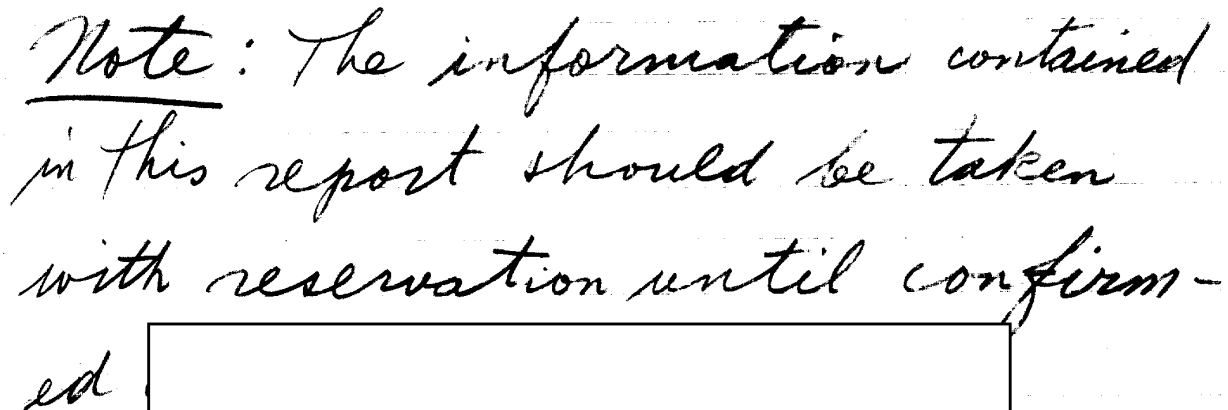 Note: The information contained
in this report should be taken
with reservation until confirm-
ed